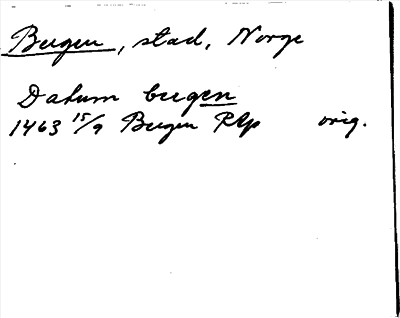 Bergen, stad, Norge
Datum bergen
1463 15/9 Bergen RAp orig.